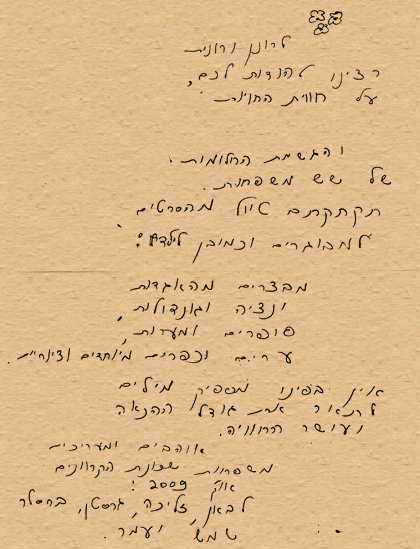 לרונן ורונית
רצינו להודות לכם,
על חווית החוויות
והגשמת החלומות
של שש משפחות.
תקתקתם טיול מהסרטים
למבוגרים וכמובן לילדים:
מבצרים מהאגדות
ונציה וגונדולות
סופרים ומערות,
ערים וכפרים מיוחדים וציוריים.
אין בפינו מספיק מילים
לתאר את גודל ההנאה
ועושר החוויה.
אוהבים ומעריכים
משפחות שכונת הקרוונים
אוג' 2009!
לבאן, זליכה, גרסטן, ברסלר
שמש ועמר.